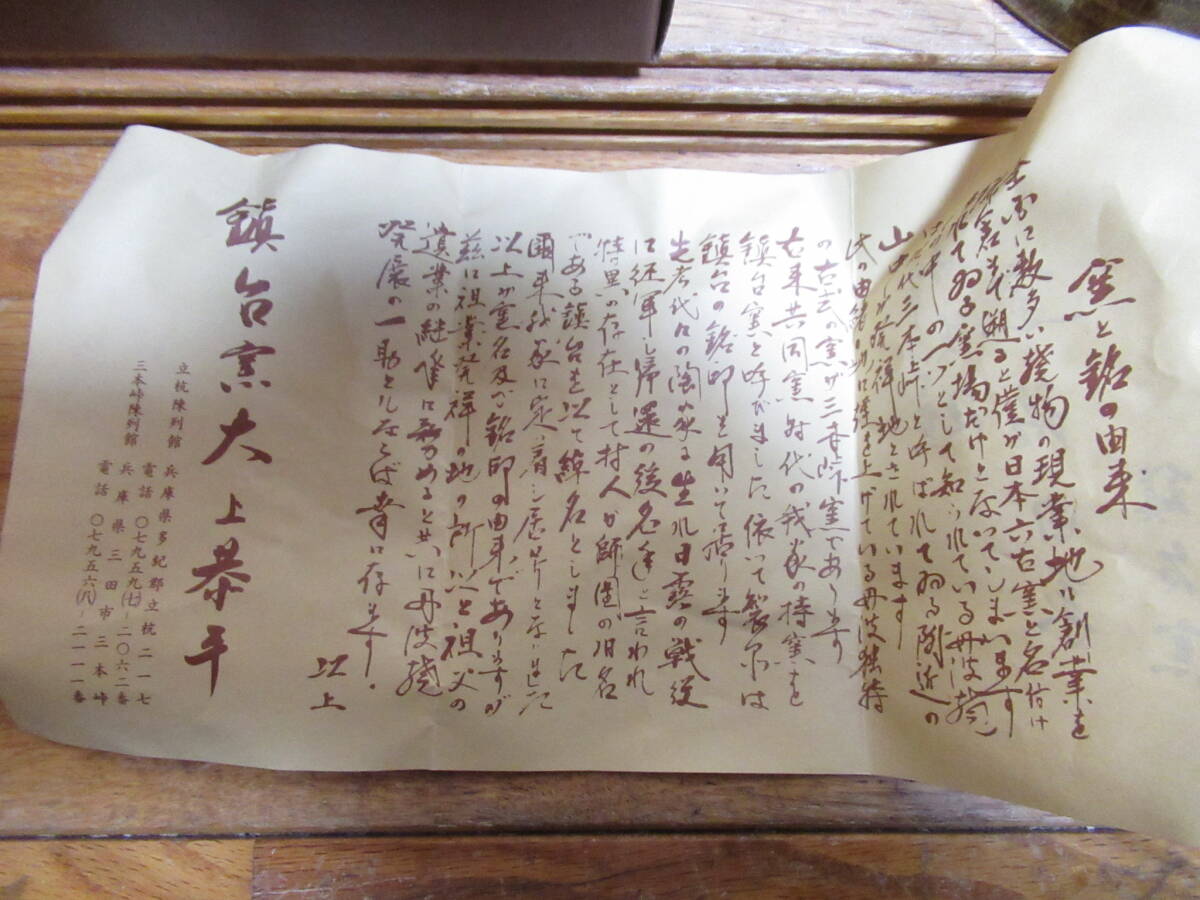 窯と銘の由来
全国に数多い焼物の現業地に創業を
鎌倉代に遡ると僅か日本六古窯と名付け
られてゐる窯場だけとなってしまいます
其の中の一つとして知られている丹波焼
古代三本峠と呼ばれてゐる附近の
山中が発祥地とされています
此の由緒の地に窯を上げている丹波独特
の古式の窯が三本峠窯であります
古来共同窯時代の我家の持窯を
鎮台窯と呼びました依いて製品は
鎮台の銘印を用いて居ります
先考代の陶家に生れ日露の戦役
に従軍し帰還の後名を 言われ
特異の存在として村人が師団の旧名
である鎮台を以て綽名としました
爾来我家に定着し居号となった
以上が窯名及び銘印の由来でありますが
茲に祖業発祥の地の所以と祖父の
遺業の継承に努めると共に丹波焼
発展の一助ともならば幸に存じます。
以上
鎮台窯 大上恭平
立杭陳列館 兵庫県多紀郡立杭二一七
電話 〇七九五九(七)-二〇六二番
三本峠陳列館 兵庫県三田市三本峠
電話 〇七九五六(八)-二一一一番